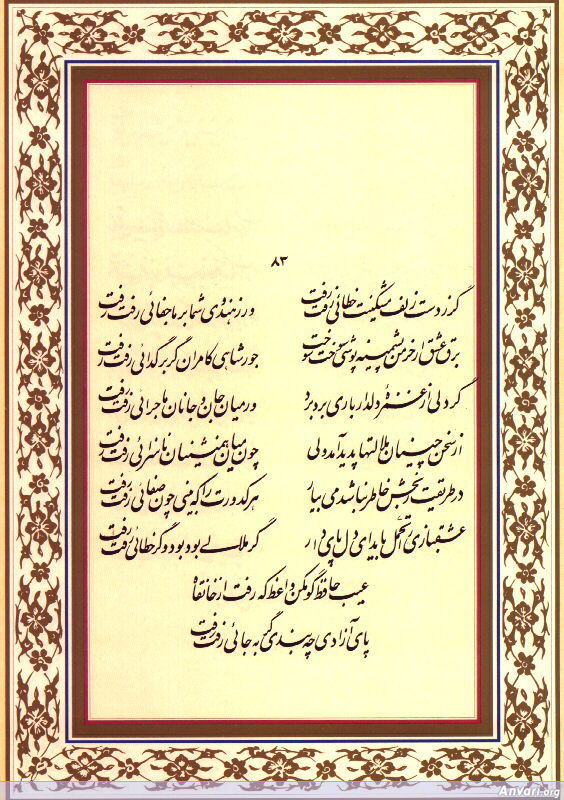 ۸۳
گر ز دست زلف مشکینت خطائی رفت رفت ور ز هندوی شما بر ما جفائی رفت رفت
برق عشق ار خرمن پشمینه پوشی سوخت سوخت جور شاهی کامران گر بر گدائی رفت رفت
گر دلی از غمزهٔ دلدار باری برد برد ور میان جان و جانان ماجرائی رفت رفت
از سخن چینان ملالتها پدید آمد ولی چون میان همنشینان ناسزائی رفت رفت
در طریقت رنجش خاطر نباشد می بیار هر کدورت را که بینی چون صفائی رفت رفت
عشقبازی را تحمل باید ای دل پای دار گر ملالی بود بود و گر خطائی رفت رفت
عیب حافظ گو مکن واعظ که رفت از خانقاه
پای آزادی چه بندی گر به جائی رفت رفت
AnVari.org